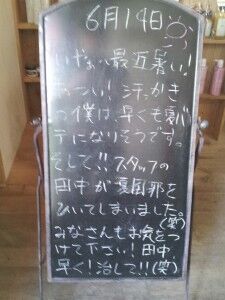 6月14日
いやぁ、最近暑い!
あつい! 汗っかき
の僕は、早くも夏バ
テになりそうです。
そして!! スタッフの
田中が夏風邪を
ひいてしまいました。(笑)
みなさんもお気をつ
けて下さい! 田中
早く! 治して!! (笑)